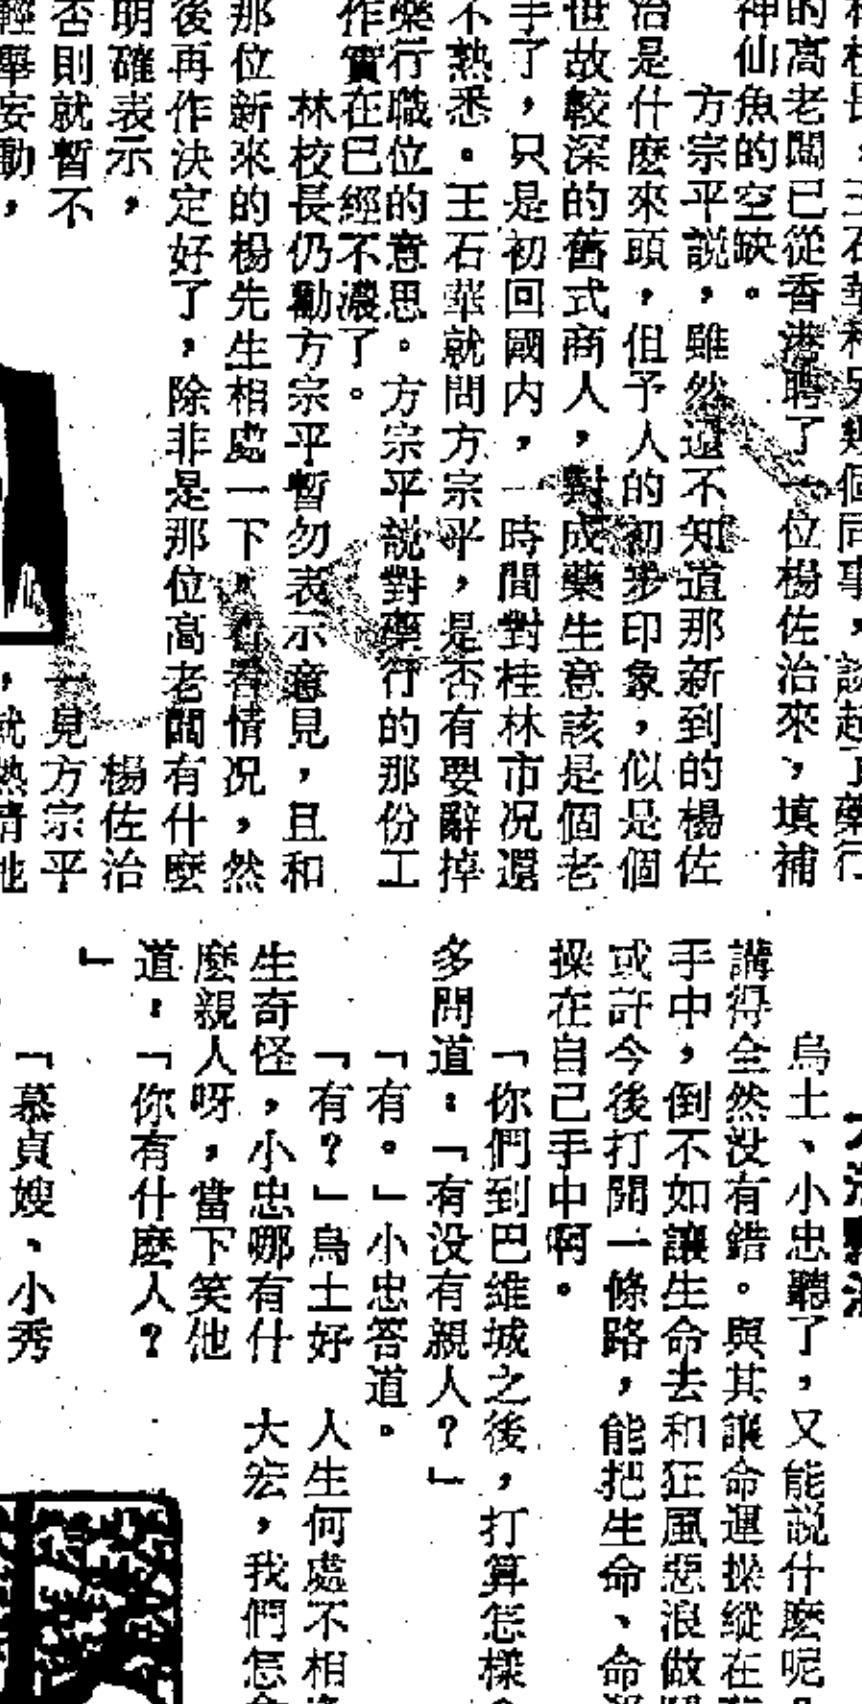 的高老闆已從香港聘了一位楊佐治來，填補
神仙魚的空缺。
方宗平說，雖然還不知道那新到的楊佐
治是什麼來頭，但予人的初步印象，似是個
世故較深的舊式商人，對成藥生意該是個老
手了，只是初回國內，一時間對桂林市況還
不熟悉。王石華就問方宗平，是否有要辭掉
藥行職位的意思。方宗平說對藥行的那份工
作實在已經不濃了。
林校長仍勸方宗平暫勿表示意見，且和
那位新來的楊先生相處一下，看看情况，然
後再作決定好了，除非是那位高老闆有什麼
明確表示，
否則就暫不
輕舉妄動，
楊佐治
一見方宗平
，就熱情地
烏土、小忠聽了，又能説什麼呢
講得全然没有錯。與其讓命運操縱在
手中，倒不如讓生命去和狂風惡浪做
或許今後打開一條路，能把生命、命
操在自己手中啊。
「你們到巴維城之後，打算怎樣
多問道：「有没有親人？」
「有。」小忠答道。
「有？」烏土好
生奇怪，小忠哪有什
麼親人呀，當下笑他
道：「你有什麼人？
」
「慕貞嫂、小秀
人生何處不相
大宏，我們怎